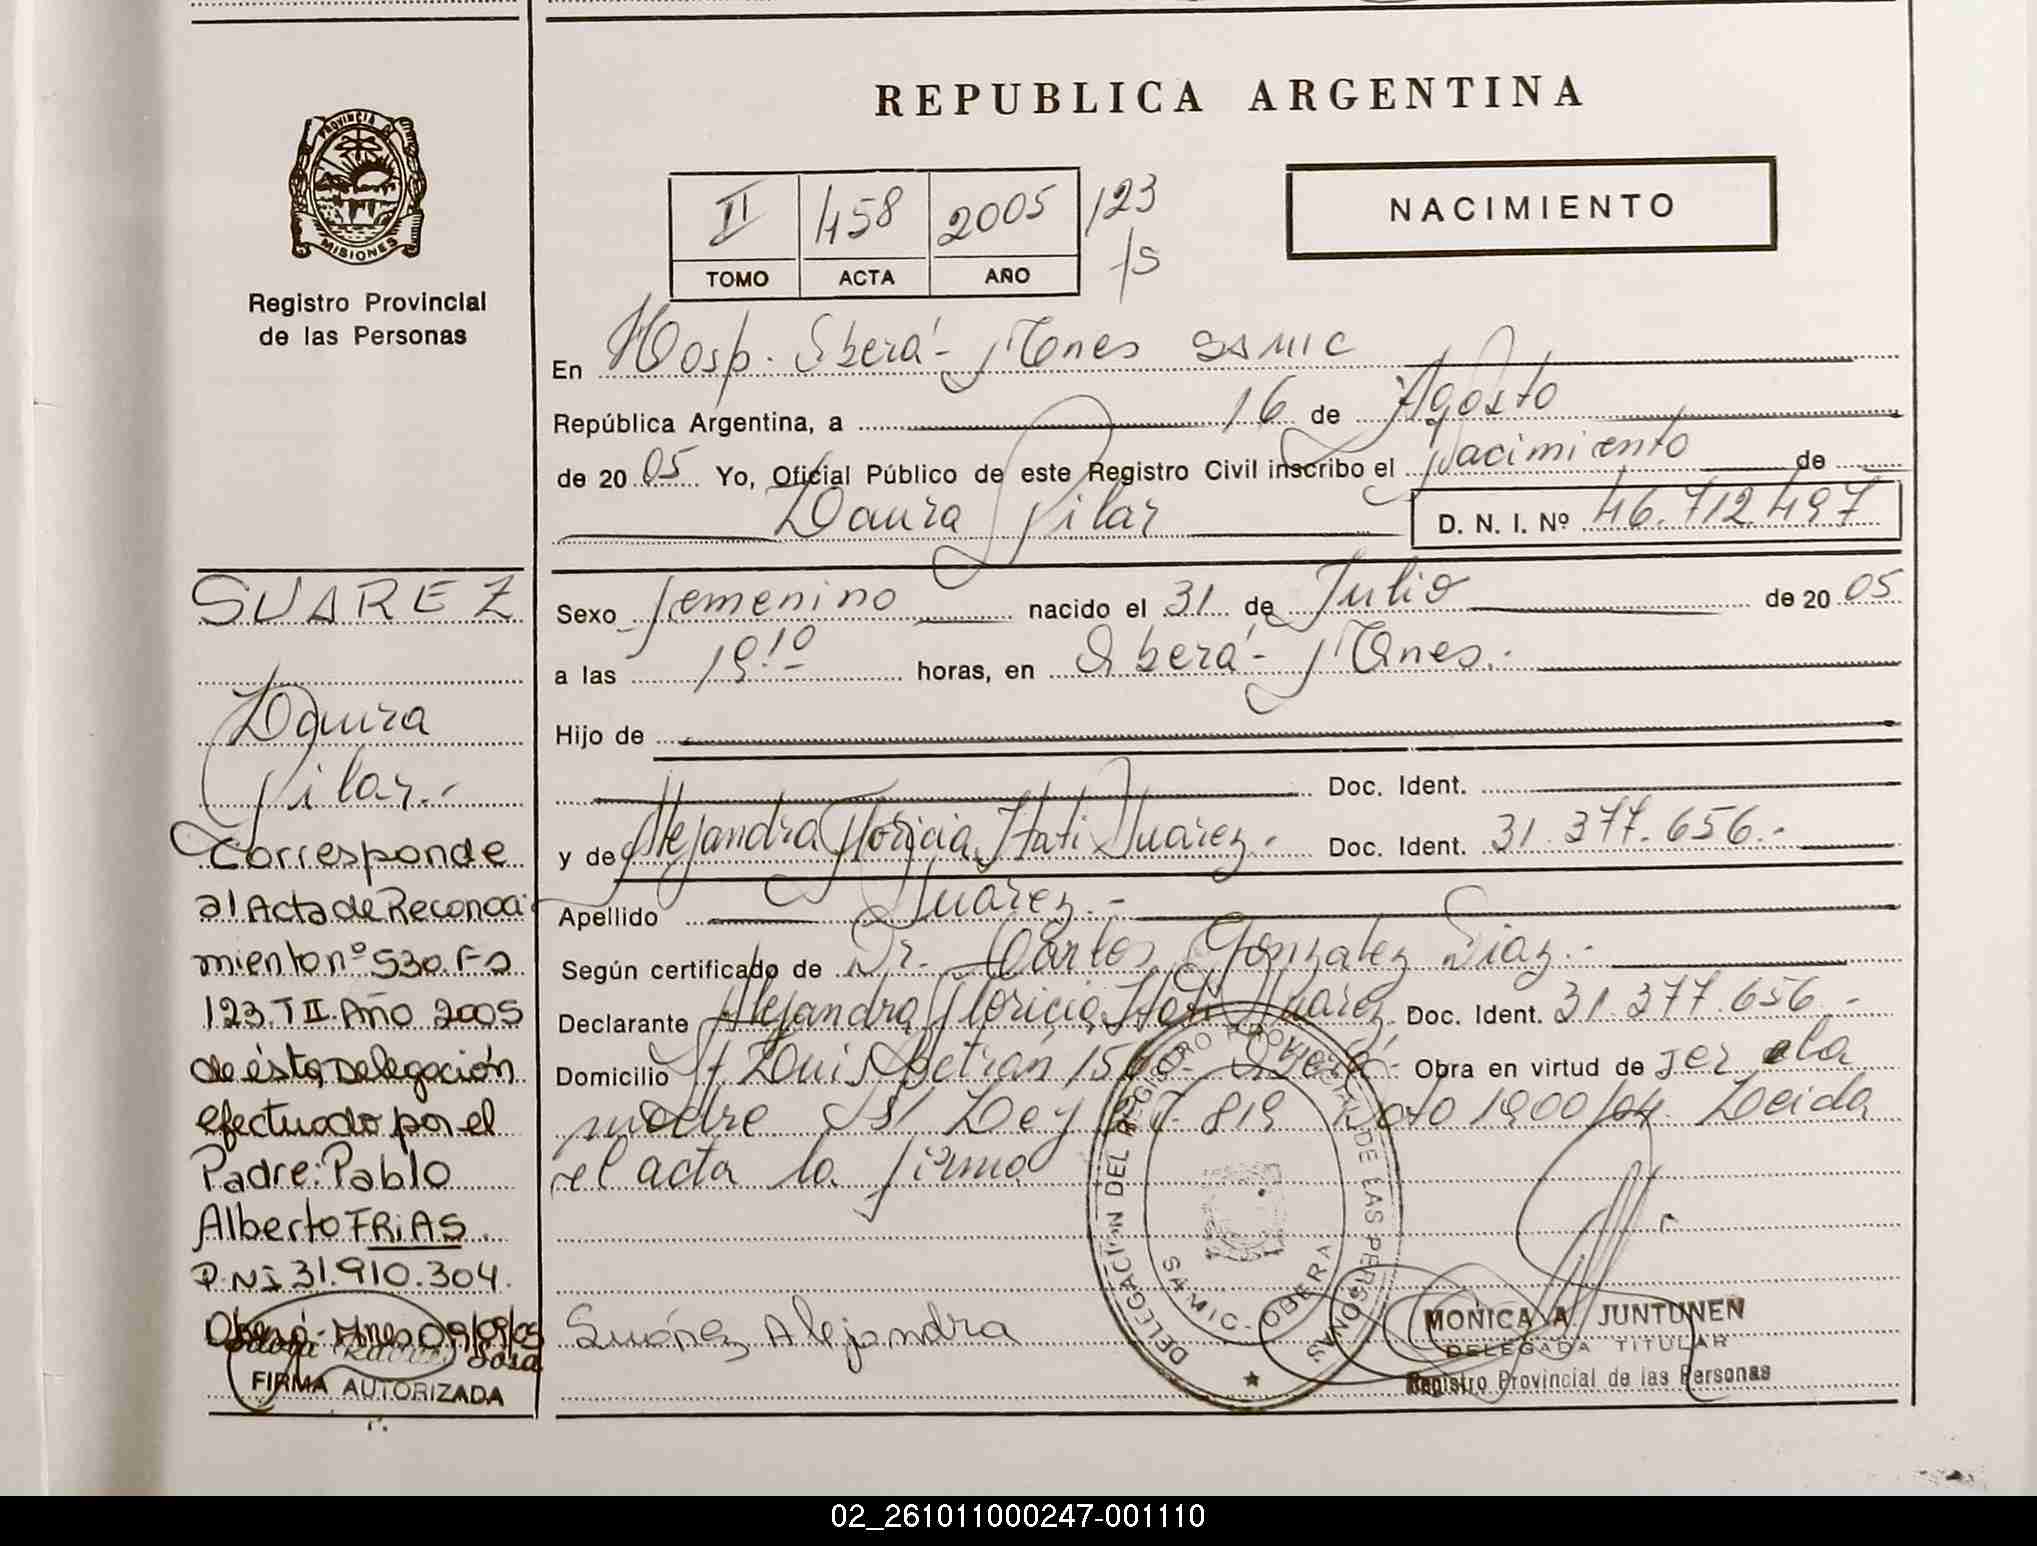 REPUBLICA ARGENTINA
PROVINCIA D
MISIONES
Registro Provincial
de las Personas
II 458 2005 /23
TOMO ACTA AÑO
NACIMIENTO
En Hosp. Oberá - Mnes SAMIC
República Argentina, a 16 de Agosto
de 20 05 Yo, Oficial Público de este Registro Civil inscribo el Nacimiento de
Laura Pilar D. N. I. Nº 46.712.497
Sexo femenino nacido el 31 de Julio de 20 05
a las 19:10 horas, en Oberá - Mnes.-
Hijo de
Doc. Ident.
y de Alejandra Itati Suarez.- Doc. Ident. 31.377.656.-
Apellido Suarez.-
Según certificado de Dr. Carlos Gonzalez Diaz.-
Declarante Alejandra Itati Suarez Doc. Ident. 31.377.656.-
Domicilio Luis Beltrán Oberá- Obra en virtud de ser la
madre Ley Dto 1900/04. Leida
el acta la firma
SUAREZ
Laura
Pilar.-
Corresponde
al Acta de Reconoci-
miento nº 530. Fs
123. T II. Año 2005
de ésta Delegación
efectuado por el
Padre: Pablo
Alberto FRIAS.
D.NI 31.910.304.
Oberá - Mnes 09/09/05
Sosa
FIRMA AUTORIZADA
Suárez Alejandra
DELEGACION DEL REGISTRO PROVINCIAL DE LAS PERSONAS
SAMIC - OBERA
MONICA A. JUNTUNEN
DELEGADA TITULAR
Registro Provincial de las Personas
02_261011000247-001110